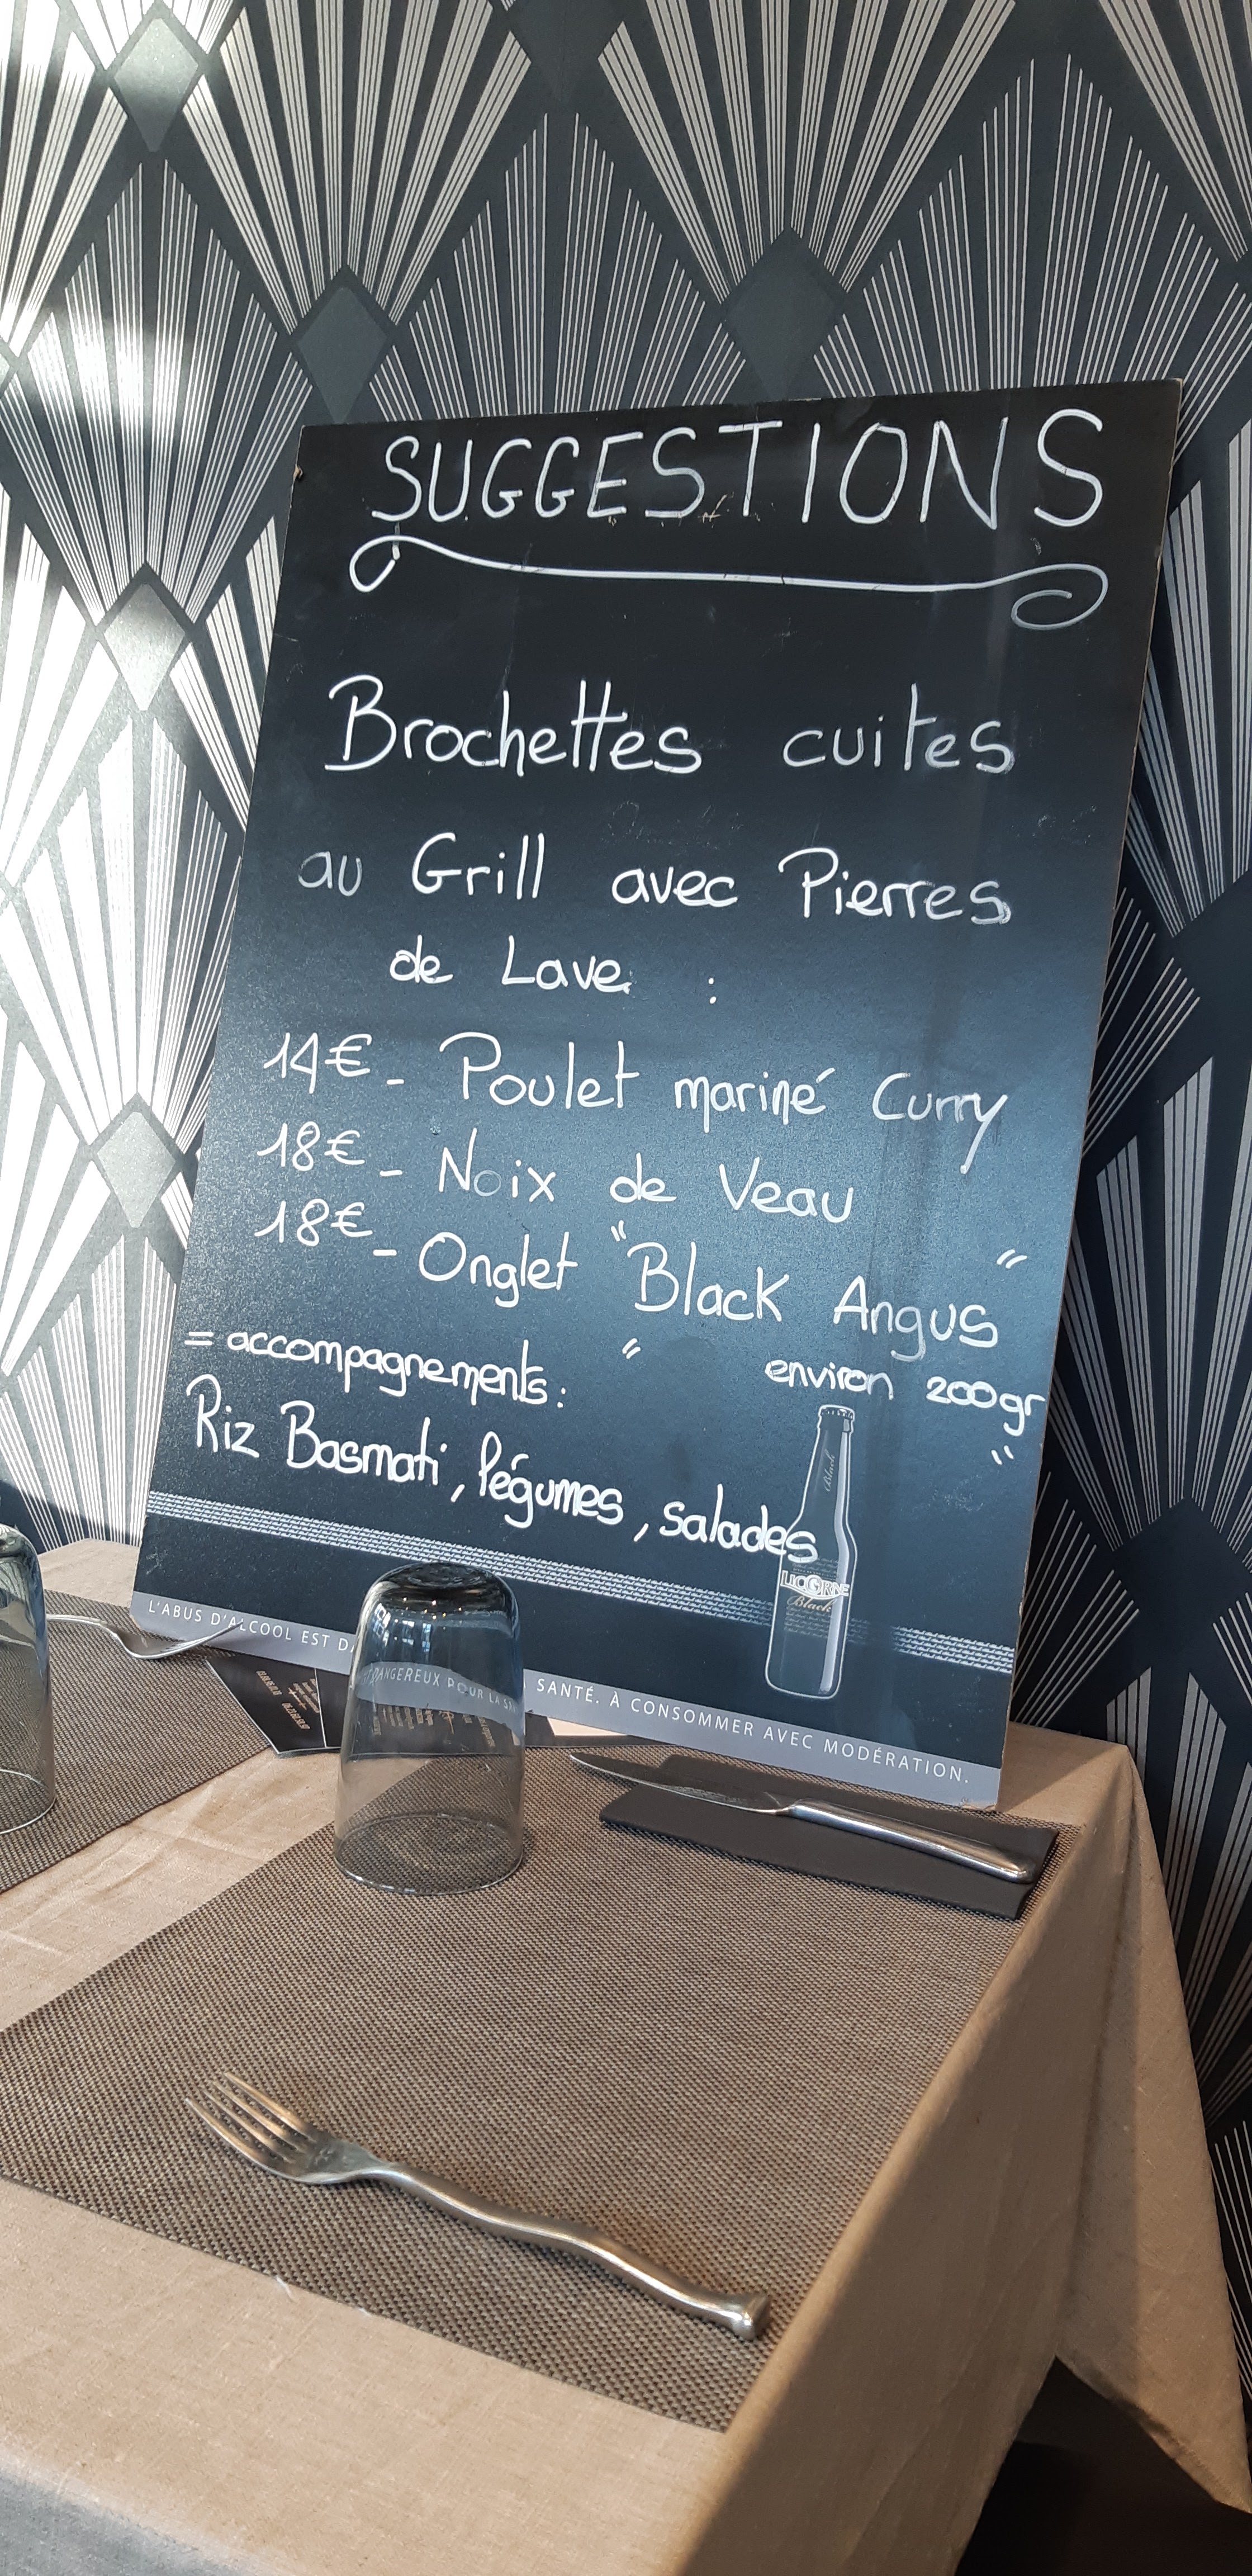 SUGGESTIONS
Brochettes cuites
au Grill avec Pierres
de Lave :
14€ - Poulet mariné Curry
18€ - Noix de Veau
18€ - Onglet "Black Angus"
" environ 200gr "
= accompagnements :
Riz Basmati, légumes, salades
Black
LICORNE
Black
L'ABUS D'ALCOOL EST DANGEREUX POUR LA SANTÉ. À CONSOMMER AVEC MODÉRATION.